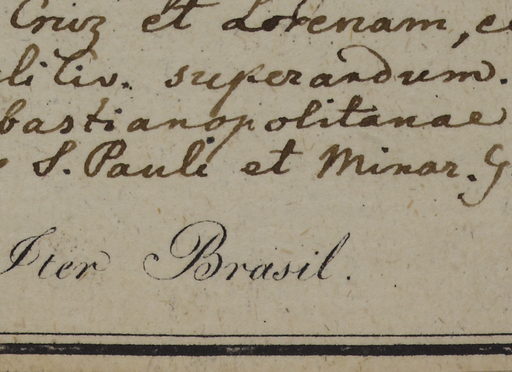 Cruz et Lorenam, e
li liv. superandum.
bastianopolitanae
S. Pauli et Minar. G
Iter Brasil.